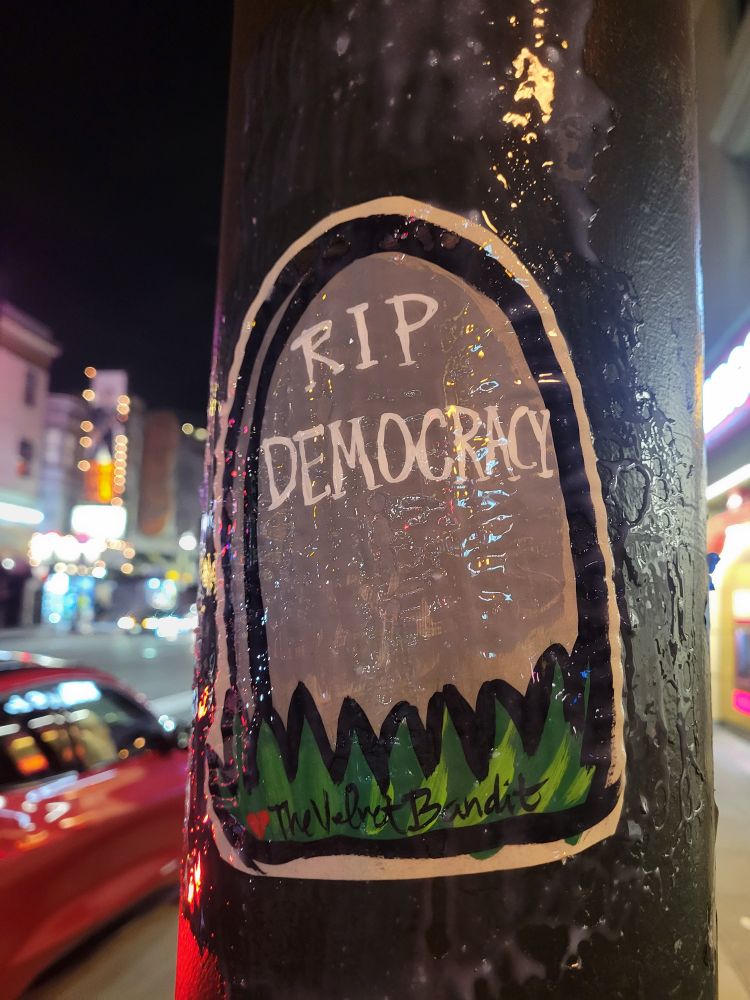 RIP
DEMOCRACY
TheVelvetBandit